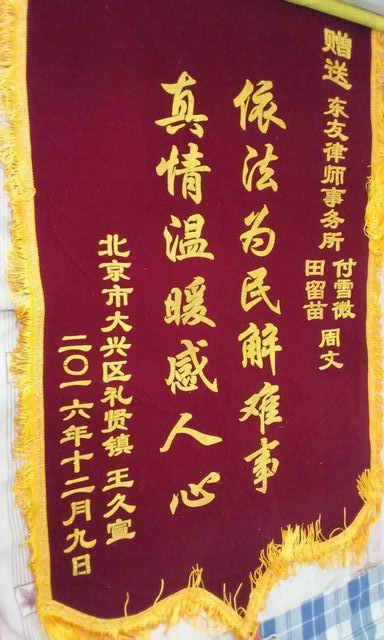 赠送 东友律师事务所
付雪微 周文
田留苗
依法为民解难事
真情温暖感人心
北京市大兴区礼贤镇 王久宣
二〇一六年十二月九日